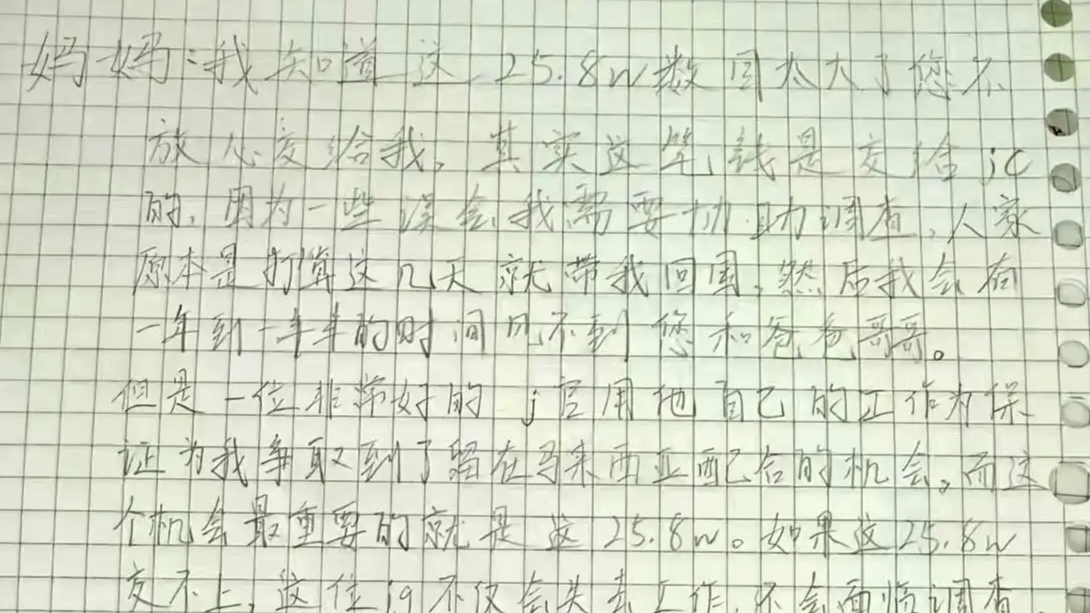 妈妈:我知道这25.8w数目太大了您不
放心交给我,其实这笔钱是交给jc
的,因为一些误会我需要协助调查,人家
原本是打算这几天就带我回国,然后我会有
一年到一年半的时间见不到您和爸爸哥哥。
但是一位非常好的j官用他自己的工作为保
证为我争取到了留在马来西亚配合的机会。而这
个机会最重要的就是这25.8w。如果这25.8w
交不上,这位jg不仅会失去工作,还会面临调查